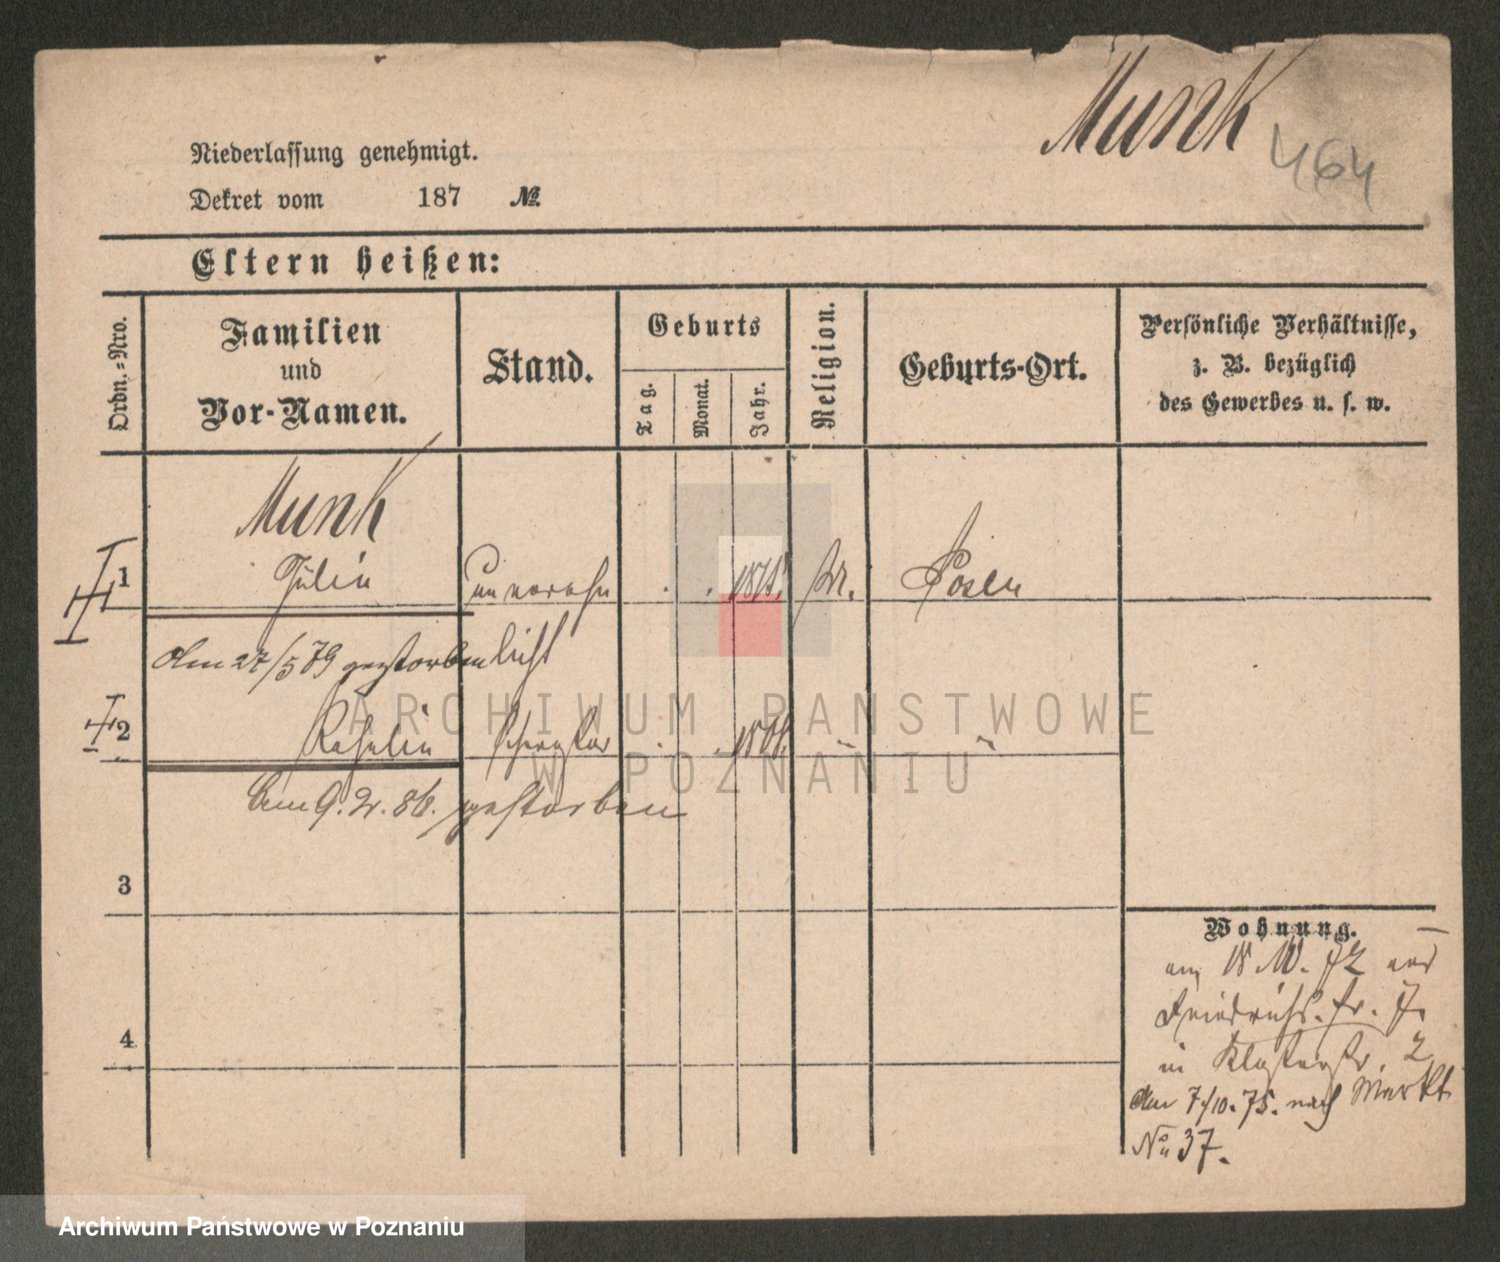 Munk
464
Niederlassung genehmigt.
Dekret vom 187 №
Eltern heißen:
Ordn.=Nro.
Familien
und
Vor-Namen.
Stand.
Geburts
Tag.
Monat.
Jahr.
Religion.
Geburts-Ort.
Persönliche Verhältnisse,
z. B. bezüglich
des Gewerbes u. s. w.
Munk
1 Julie unverehe Posen
Am 27/5 79 gestorben licht
2 Rosalie
Am 9. 2. 86. gestorben
3
4
Wohnung.
72
Friedrichs.str. 7.
in Klosterstr. 2
Am 7/10. 75. nach Markt
No 37.
ARCHIWUM PAŃSTWOWE
W POZNANIU
Archiwum Państwowe w Poznaniu